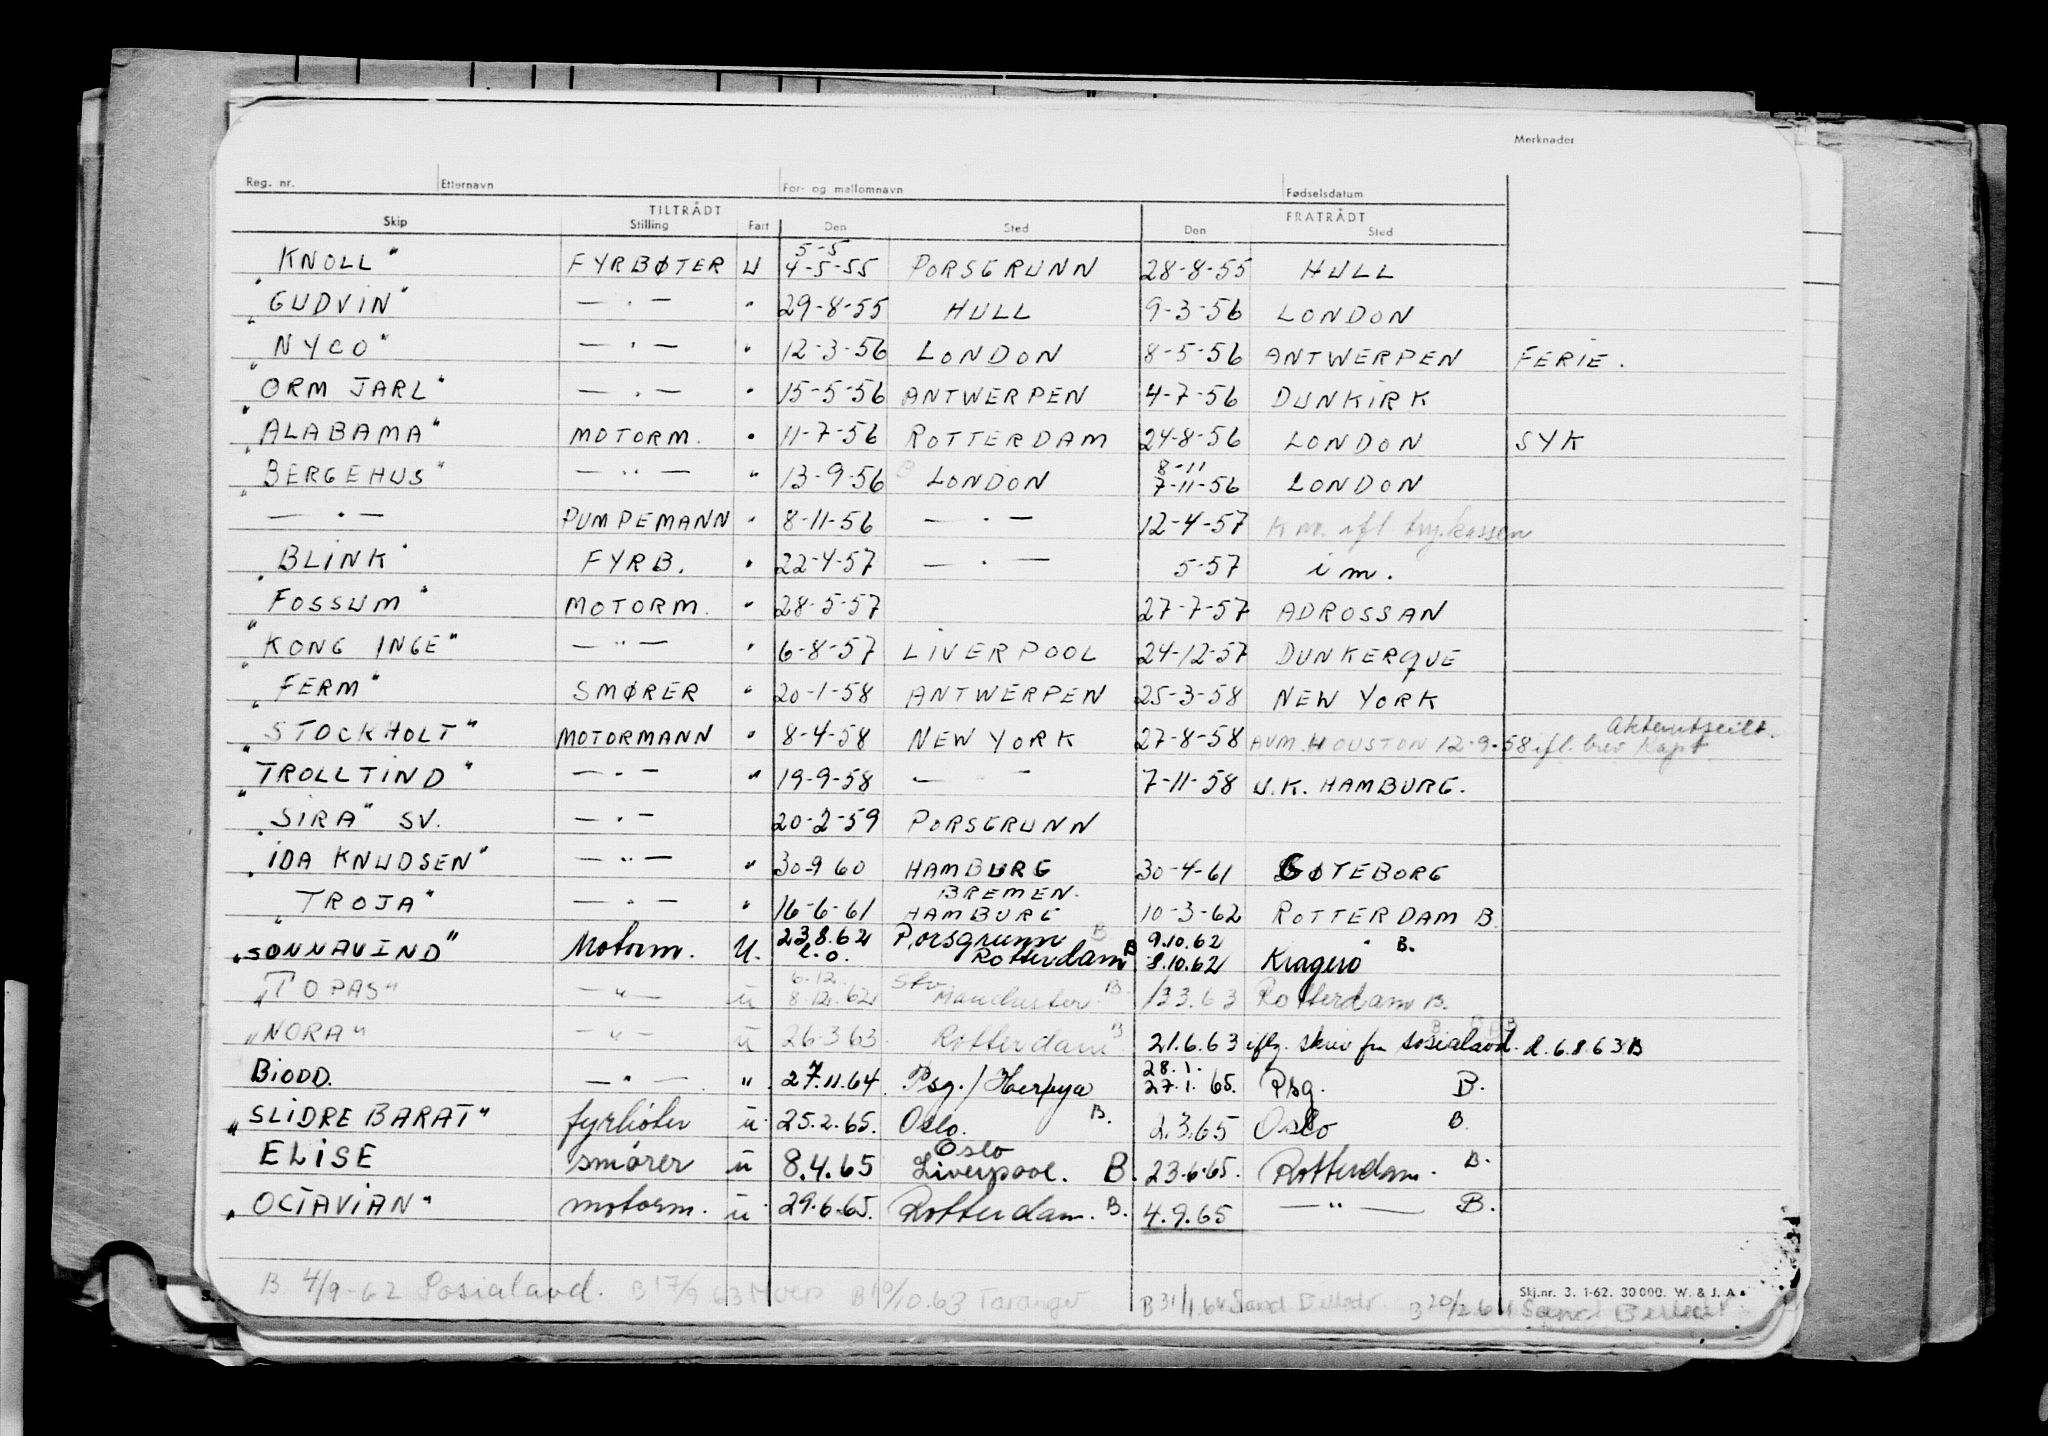 Merknader
Reg. nr. Etternavn For- og mellomnavn Fødselsdatum
TILTRÅDT FRATRÅDT
Skip Stilling Fart Den Sted Den Sted
5-5
KNOLL" FYRBØTER U 4-5-55 PORSGRUNN 28-8-55 HULL
"GUDVIN" — " — " 29-8-55 HULL 9-3-56 LONDON
"NYCO" — " — " 12-3-56 LONDON 8-5-56 ANTWERPEN FERIE.
"ORM JARL" — " — " 15-5-56 ANTWERPEN 4-7-56 DUNKIRK
"ALABAMA" MOTORM. " 11-7-56 ROTTERDAM 24-8-56 LONDON SYK
8-11
"BERGEHUS" — " — " 13-9-56 B LONDON 7-11-56 LONDON
" — " — PUMPEMANN " 8-11-56 — " — 12-4-57 K.m. ifl try.kassen
"BLINK" FYRB. " 22-4-57 — " — 5-57 i m.
"FOSSUM" MOTORM. " 28-5-57 27-7-57 ADROSSAN
"KONG INGE" — " — " 6-8-57 LIVERPOOL 24-12-57 DUNKERQUE
"FERM" SMØRER " 20-1-58 ANTWERPEN 25-3-58 NEW YORK
Akterutseilt.
"STOCKHOLT" MOTORMANN " 8-4-58 NEW YORK 27-8-58 AVM. HOUSTON 12-9-58 ifl. brev Kapt.
"TROLLTIND" — " — " 19-9-58 — " — 7-11-58 U.K. HAMBURG.
"SIRA" SV. — " — 20-2-59 PORSGRUNN
"IDA KNUDSEN" — " — " 30-9 60 HAMBURG 30-4-61 GØTEBORG
BREMEN.
"TROJA" — " — " 16-6-61 HAMBURG 10-3-62 ROTTERDAM B
23.8.62 Porsgrunn B 9.10.62
"SONNAVIND" Motorm. U. Rotterdam B 8.10.62 Kragerø B.
6.12. Stv.
"TOPAS" — " — ü 8.12.62 Manchester B. 13.3.63 Rotterdam B.
"NORA" — " — ü 26.3.63 Rotterdam B 21.6.63 iflg. skriv fra sosialavd. d. 6.8.63 B
28.1.
BIODD. — " — " 27.11.64. Psg./Herøya 27.1.65. Psg. B.
"SLIDRE BARAT" fyrbøter ü 25.2.65. Oslo. B. 2.3.65 Oslo B.
Oslo
ELISE smører ü 8.4.65 Liverpool. B. 23.6.65. Rotterdam. B.
"OCTAVIAN" motorm. ü 29.6.65. Rotterdam. B. 4.9.65 — " — B.
B 4/9-62 Sosialavd. B 17/9 63 B 10/10.63 Taranger B 31/1.64 Sand B 20/2.64 Sand
Skj.nr. 3. 1-62. 30 000. W. & J. A.